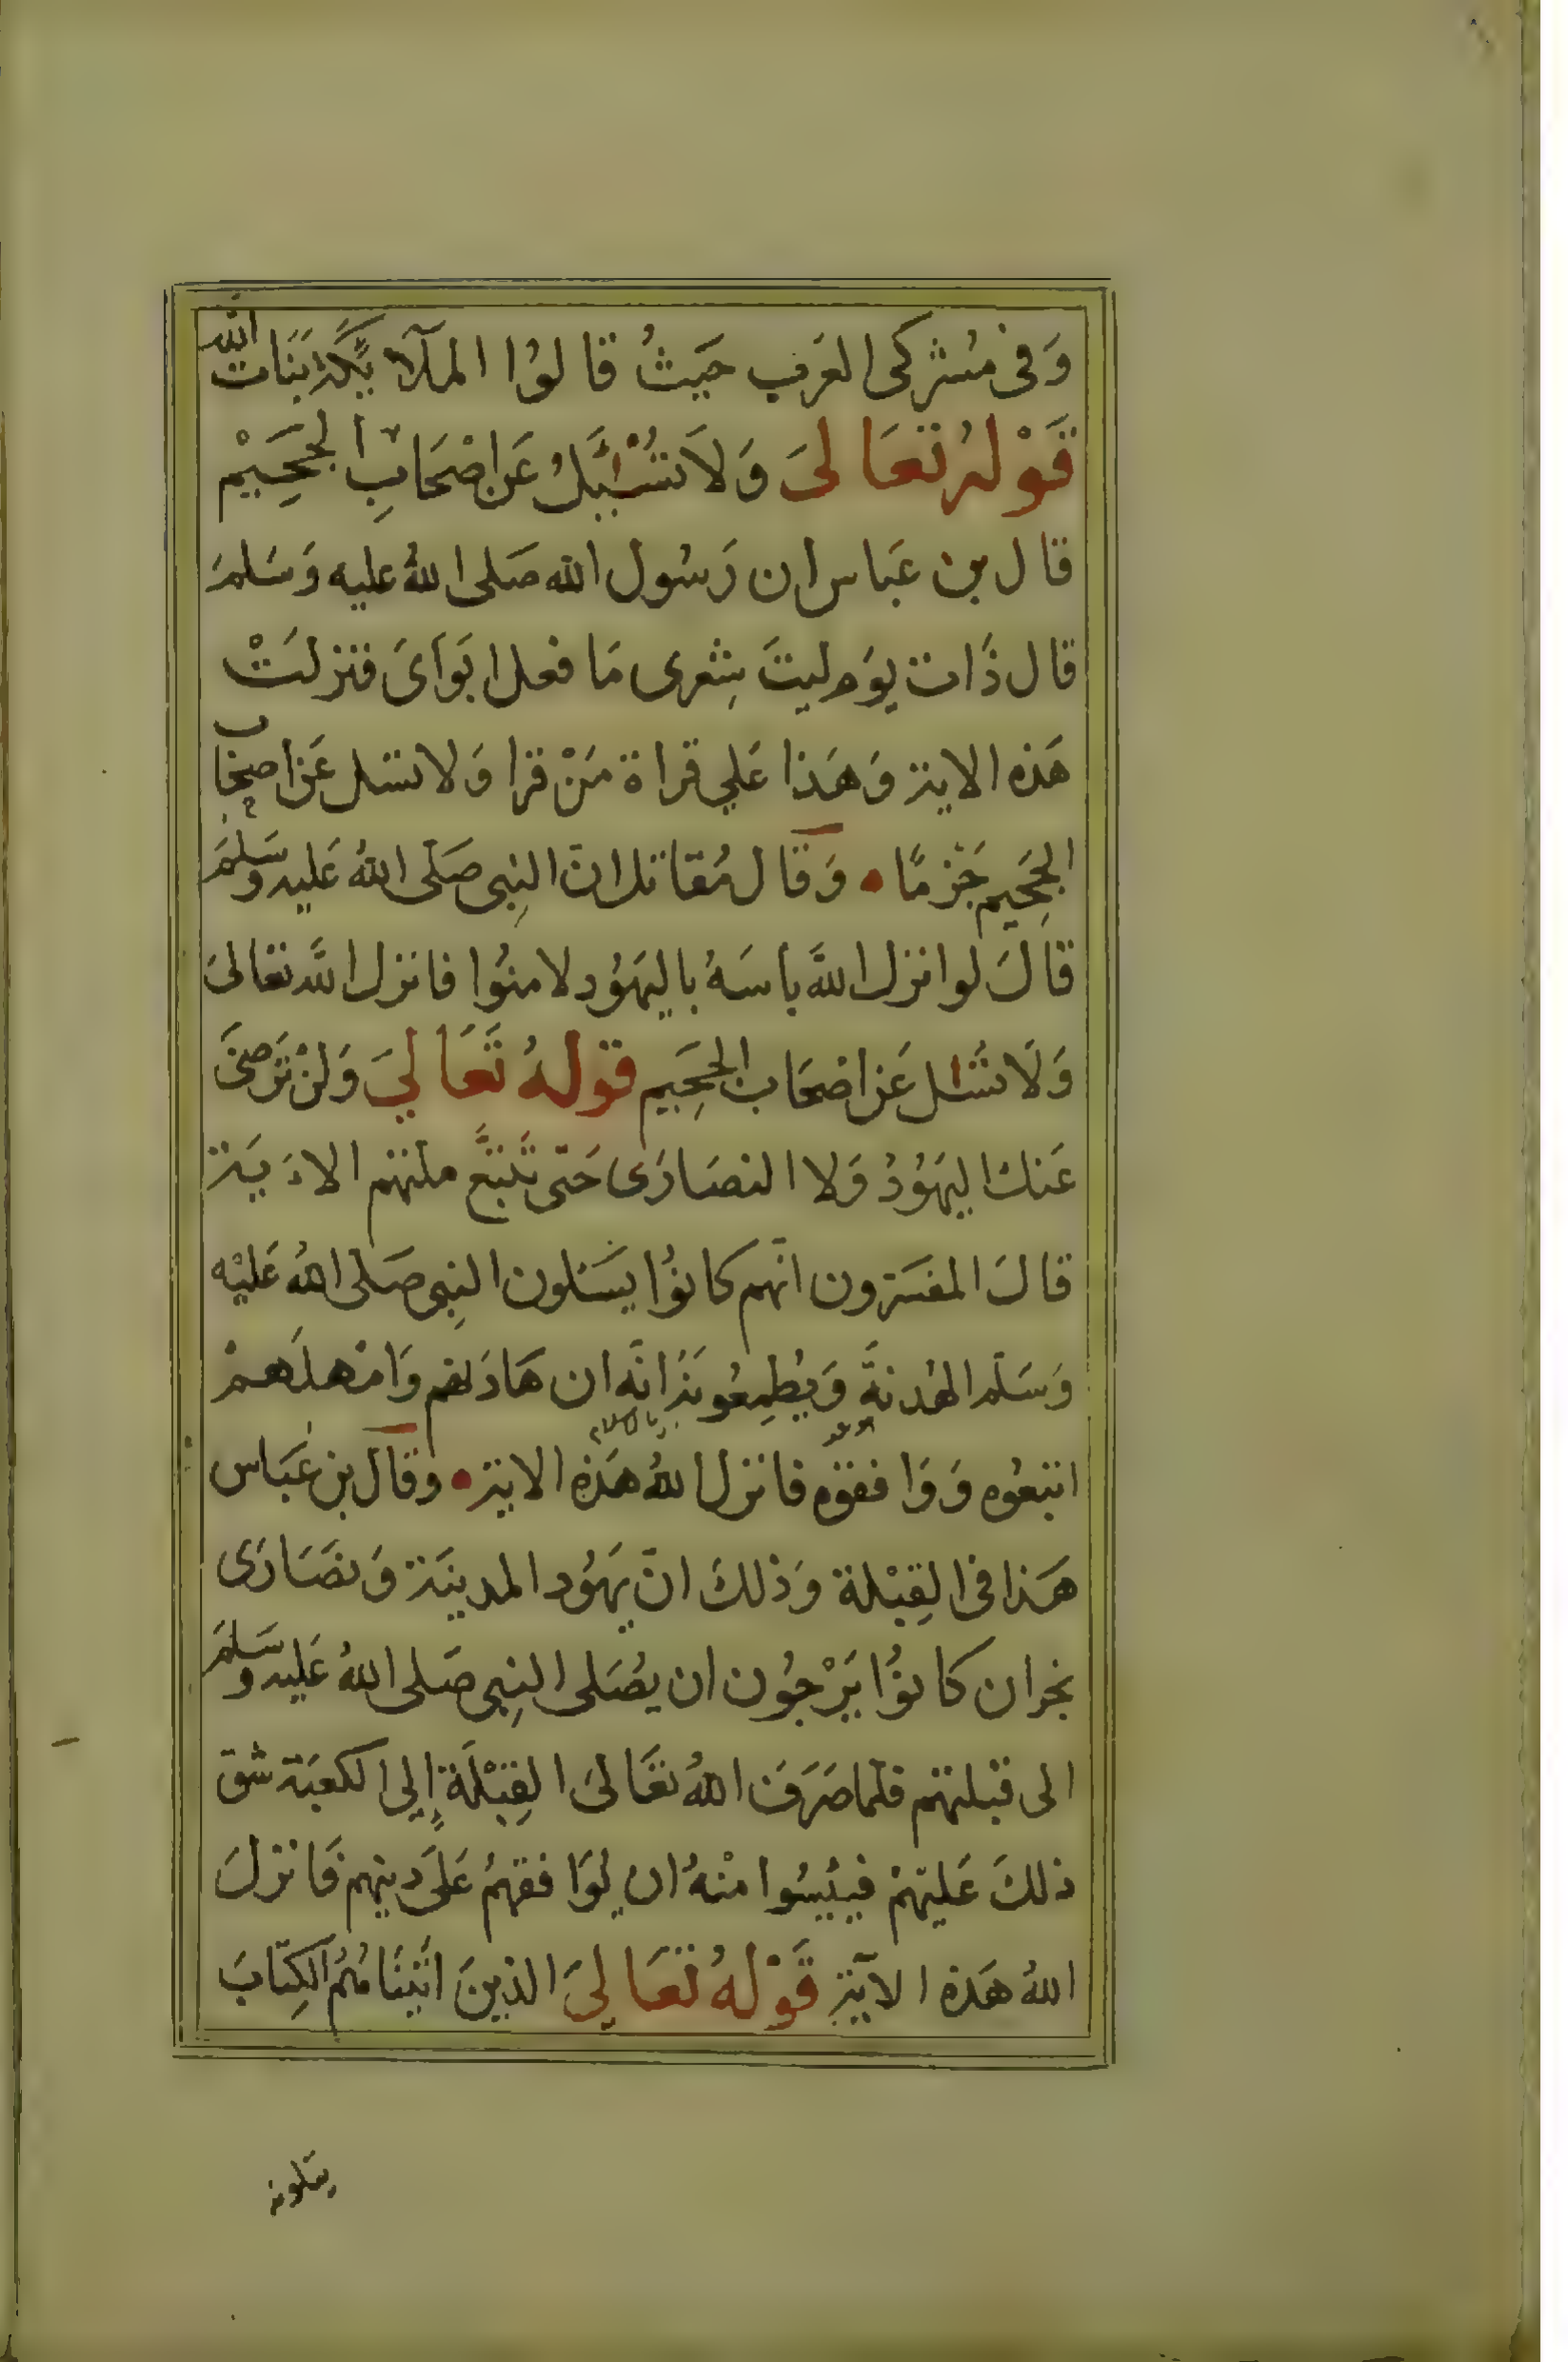 وَفى مُشركى العَرب حَيثُ قالوُا الملآئكة بَنَات الله
قَوْلهُ تعَالىَ وَلاَ تُسْئَلُ عَن اصْحَابِ الجَحِيْم
قال بن عَباس ان رَسُول الله صَلى اللهُ عليه وَسَلمَ
قال ذَات يوَم ليتَ شِعرى مَا فعل ابَوَاىَ فنزلتْ
هَذه الاية وَهَذا عَلي قراة مَنْ قرا وَلا تسئل عَن اصحَاب
الجَحِيم جَزمًا وَقال مُقاتل انّ النِبى صَلّى اللهُ عَليه وسَلمَ
قالَ لو انزل اللهَّ باسَهُ باليهَوُد لامنوُا فانزل اللّه تعَالىَ
وَلَا تسُئل عَن اصْحَاب الجَحِيم قَولهُ تَعَاليَ وَلَنْ تَرضىَ
عَنك اليهَوُدُ وَلا النصَارَى حَتى تَتبَّعَ ملتهم الاَيَة
قالَ المفسَرون انّهم كانوُا يسَئلون النِبى صَلى اللهُ عَليْه
وَسَلّم الهُدنةَّ وَيُطمِعُونَهُ انَّه ان هَادَنهم وَامْهلَهمْ
اتبعُوه وَوَافقوه فانزل اللهُ هَذِه الاية وقال بن عَبَاس
هَذا فى القِبْلة وَذلكَ انّ يهَوُد المدينَة وَنصَارَى
نجران كانوُا يَرْجُون ان يصُلى النِبى صَلى اللهُ عَليه وسَلمَ
الى قبلتهم فلمّا صَرَفَ اللهُ تعَالىَ القِبْلَة إِلى الكعبَة شق
ذلكَ عَليهْم فيئيسُوا منْهُ ان يُوَافقهُم عَلىَ دينهم فَانزلَ
اللهُ هَذه الآية قَوْلهُ تعَاليَ الذينَ اتَينَاهُمُ الكِتابَ
يتلونه